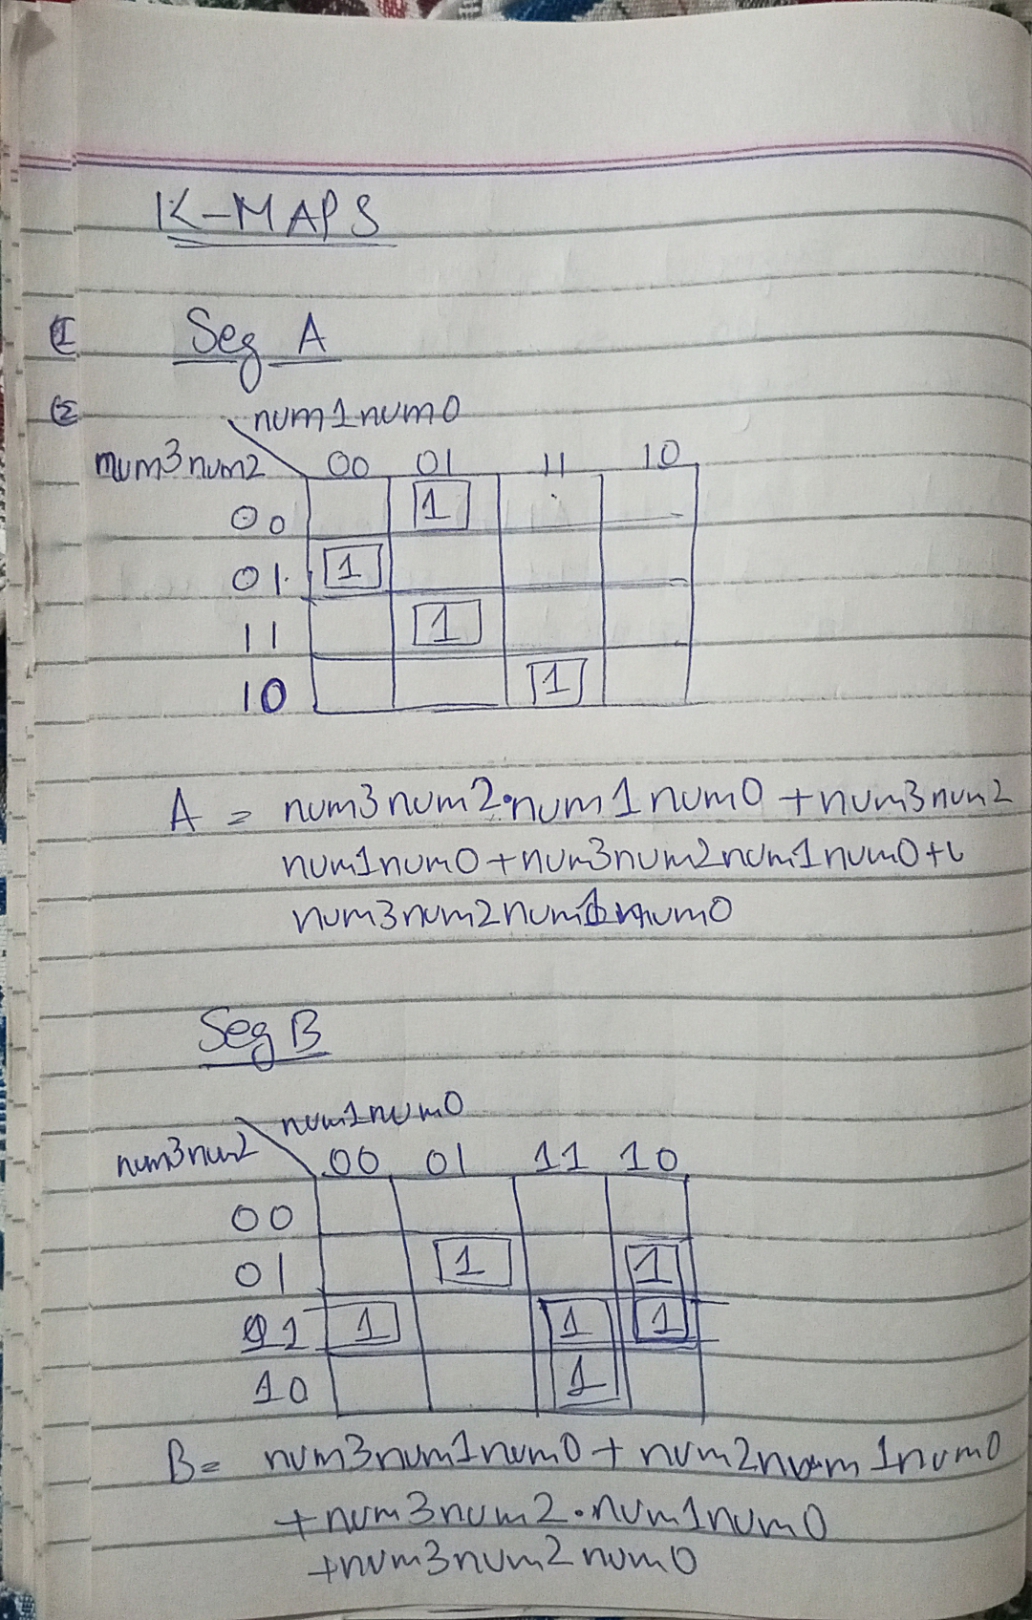 K-MAPS
Seg A
num1num0
num3num2 00 01 11 10
00 1
01 1
11 1
10 1
A = num3num2.num1num0 + num3num2
num1num0+num3num2num1num0+
num3num2num1num0
Seg B
num1num0
num3num2 00 01 11 10
00
01 1 1
11 1 1 1
10 1
B= num3num1num0 + num2num1num0
+num3num2.num1num0
+num3num2num0